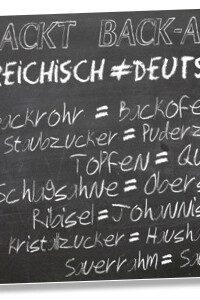 ACKT BACK-A
REICHISCH ≠ DEUTS
ackrohr = Backofe
Staubzucker = Puderz
TOPFEN = QU
Schlagsahne = Obers
Ribisel = Johannis
Kristallzucker = Haush
Sauerrahm = Sa